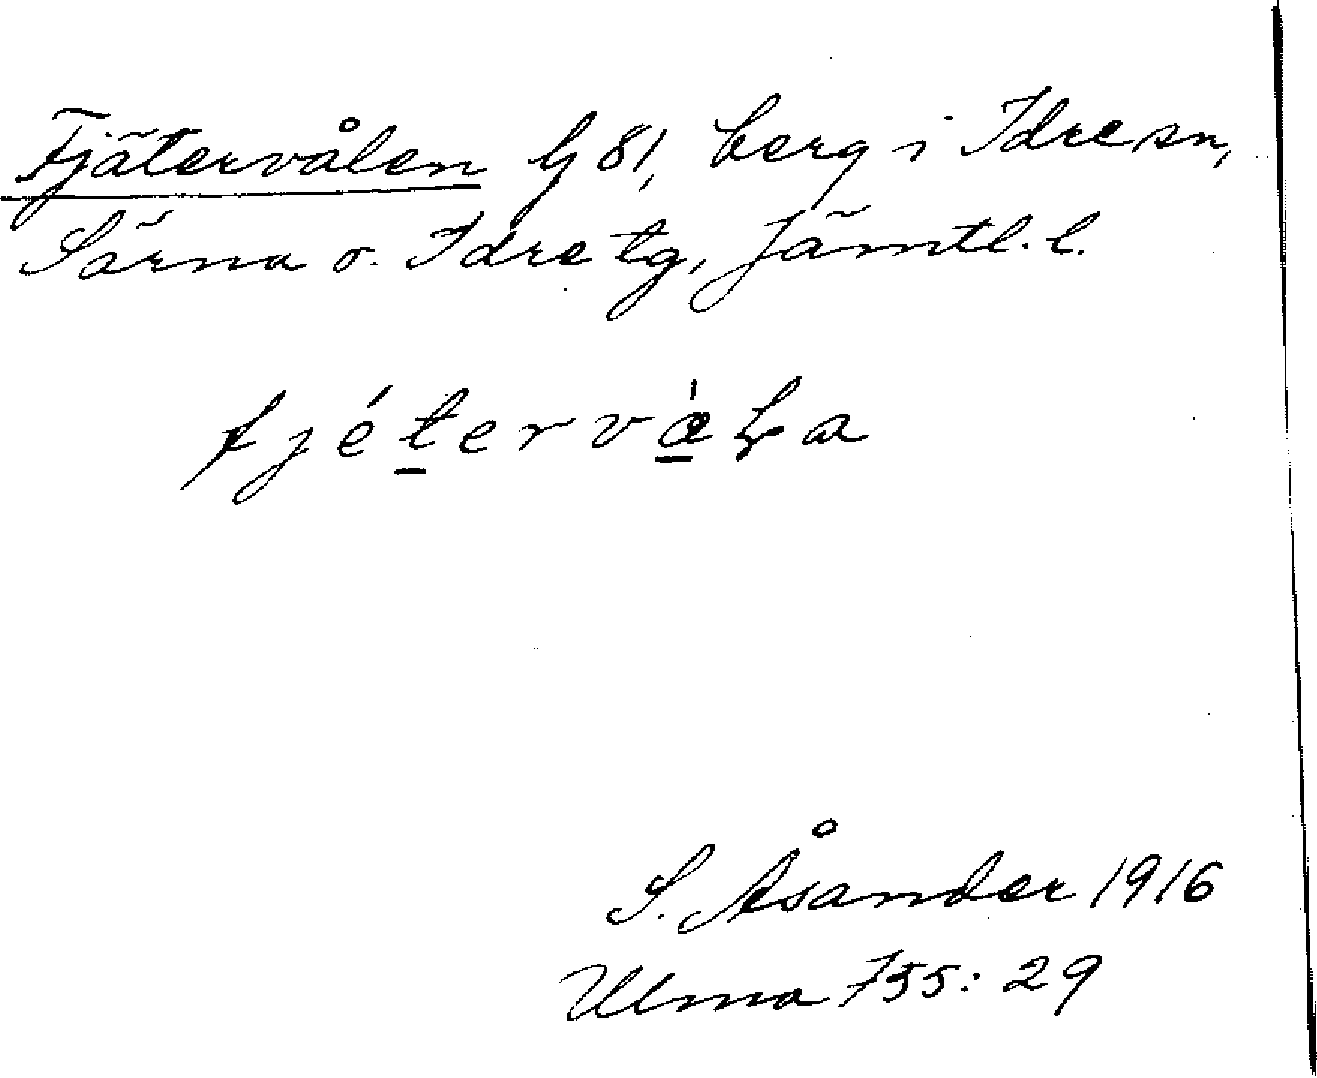 Fjätervålen G 81, berg i Idre sn,
Särna o. Idre tg, Jämtl. l.
fjétervåɫa
S. Åsander 1916
Ulma 755: 29